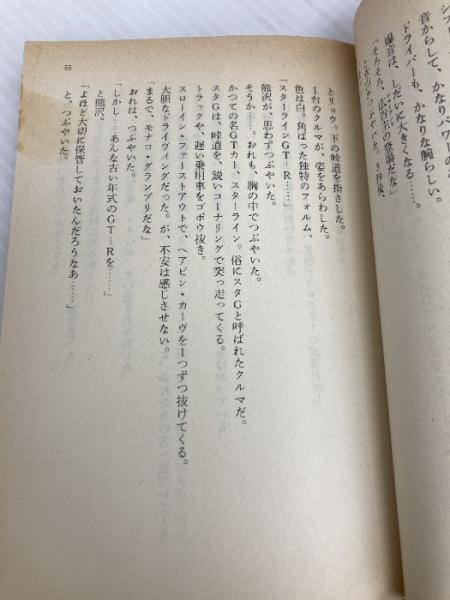 音からして、かなりパワーの
ドライバーも、かなりな腕らしい。
爆音は、しだいに大きくなる……。
とリョウ。下の峠道を指さした。
1台のクルマが、姿をあらわした。
色は白。角ばった独特のフォルム。
「スターラインGT—R……」
熊沢が、思わずつぶやいた。
そうか……。おれも、胸の中でつぶやいた。
かつての名GTカー、スターライン。俗にスタGと呼ばれたクルマだ。
スタGは、峠道を、鋭いコーナリングで突っ走ってくる。
トラックや、遅い乗用車をゴボウ抜き。
スローイン・ファーストアウトで、ヘアピン・カーヴを1つずつ抜けてくる。
大胆なドライヴィングだった。が、不安は感じさせない。
「まるで、モナコ・グランプリだな」
おれは、つぶやいた。
「しかし……あんな古い年式のGT—Rを……」
と熊沢。
「よほど大切に保管しておいたんだろうなあ……」
と、つぶやいた。
55